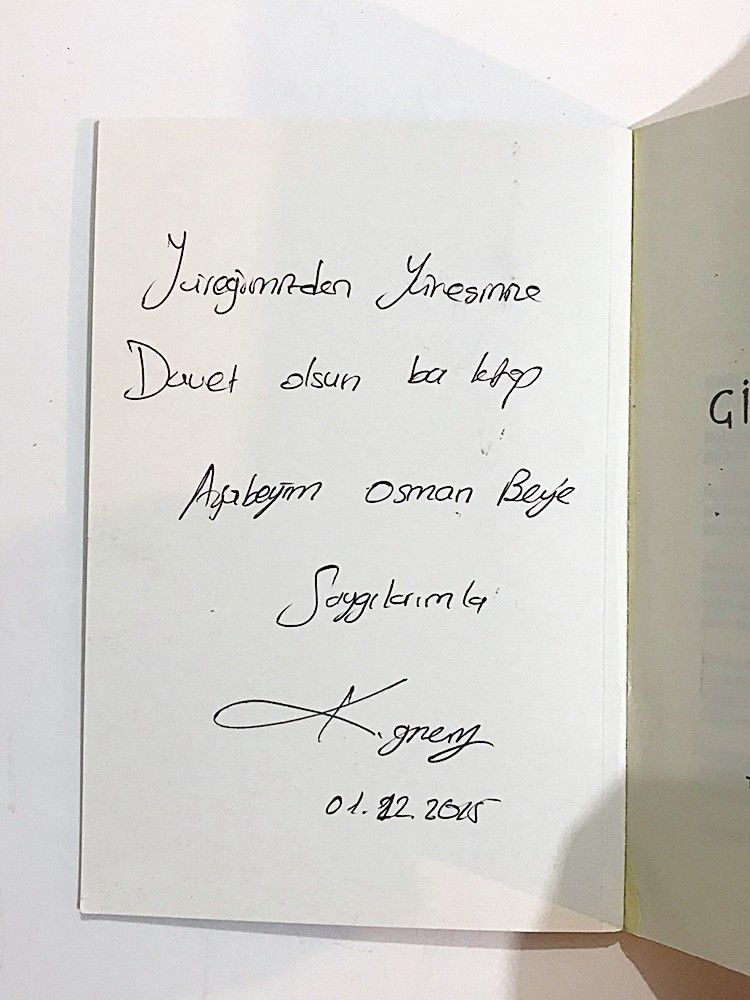 Yüreğimizden Yüreğinize
Davet olsun bu kitap
Ağabeyim Osman Beye
Saygılarımla
01.12.2015
Gİ